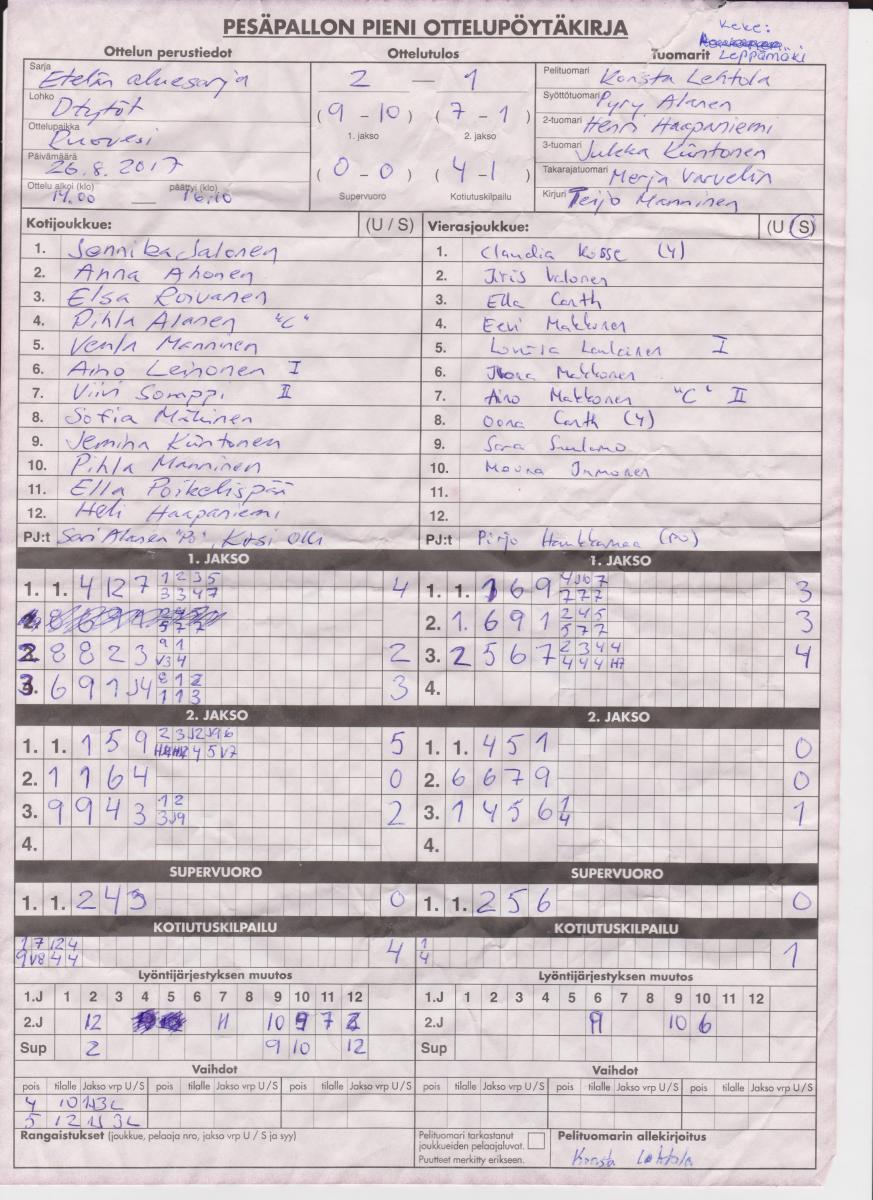 PESÄPALLON PIENI OTTELUPÖYTÄKIRJA
Keke:
Leppämäki
Ottelun perustiedot
Ottelutulos
Tuomarit
Sarja Etelän aluesarja
Lohko D tytöt
Ottelupaikka Ruovesi
Päivämäärä 26.8.2017
Ottelu alkoi (klo) päättyi (klo)
14.00 — 16.10
2 — 1
(9 - 10) (7 - 1)
1. jakso 2. jakso
(0 - 0) (4 - 1)
Supervuoro Kotiutuskilpailu
Pelituomari Konsta Lehtola
Syöttötuomari Pyry Alanen
2-tuomari Henri Haapaniemi
3-tuomari Jukka Kiintonen
Takarajatuomari Merja Varvelin
Kirjuri Teijo Manninen
Kotijoukkue: (U / S)
1. Jonnika Salonen
2. Anna Ahonen
3. Elsa Roivanen
4. Pihla Alanen "C"
5. Venla Manninen
6. Aino Leinonen I
7. Viivi Somppi II
8. Sofia Mäkinen
9. Jemina Kiintonen
10. Pihla Manninen
11. Ella Poikelispää
12. Heli Haapaniemi
PJ:t Sari Alanen "PJ", Kirsi Olli
Vierasjoukkue: (U / S)
1. Claudia Kosse (Y)
2. Iiris Valonen
3. Ella Carth
4. Eevi Makkonen
5. Loviisa I
6. Ilona Makkonen
7. Aino Makkonen "C" II
8. Oona Carth (Y)
9. Sara
10. Moona Immonen
11.
12.
PJ:t Pirjo Haukkamaa (PJ)
1. JAKSO
1. 1. 4 12 7 4
2. 8 8 2 3 2
3. 6 9 1 J4 3
1. JAKSO
1. 1. 1 6 9 3
2. 1. 6 9 1 3
3. 2 5 6 7 4
4.
2. JAKSO
1. 1. 1 5 9 5
2. 1 1 6 4 0
3. 9 9 4 3 2
4.
2. JAKSO
1. 1. 4 5 1 0
2. 6 6 7 9 0
3. 1 4 5 6 1
4.
SUPERVUORO
1. 1. 2 4 3 0
SUPERVUORO
1. 1. 2 5 6 0
KOTIUTUSKILPAILU
1 7 12 4
9 V8 4 4
4
KOTIUTUSKILPAILU
1
4
1
Lyöntijärjestyksen muutos
1.J 1 2 3 4 5 6 7 8 9 10 11 12
2.J 12 11 10 9 7 2
Sup 2 9 10 12
Lyöntijärjestyksen muutos
1.J 1 2 3 4 5 6 7 8 9 10 11 12
2.J 9 10 6
Sup
Vaihdot
pois tilalle Jakso vrp U / S pois tilalle Jakso vrp U / S pois tilalle Jakso vrp U / S
4 10 1J3L
5 12 1J3L
Vaihdot
pois tilalle Jakso vrp U / S pois tilalle Jakso vrp U / S pois tilalle Jakso vrp U / S
Rangaistukset (joukkue, pelaaja nro, jakso vrp U / S ja syy)
Pelituomari tarkastanut
joukkueiden pelaajaluvat.
Puutteet merkitty erikseen.
Pelituomarin allekirjoitus
Konsta Lehtola